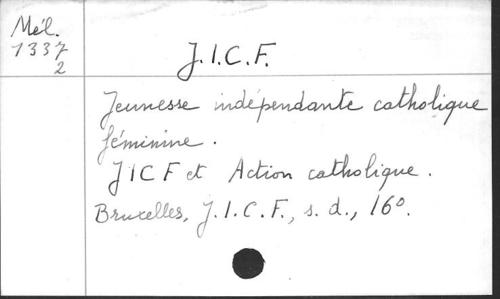 Mél.
1337
2
J.I.C.F.
Jeunesse indépendante catholique
féminine.
JICF et Action catholique.
Bruxelles, J.I.C.F., s. d., 16°.